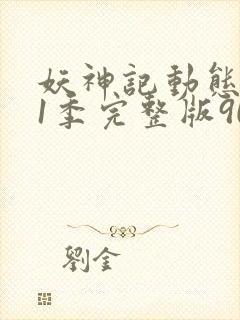 妖神記動態
1季完整版90
劉金